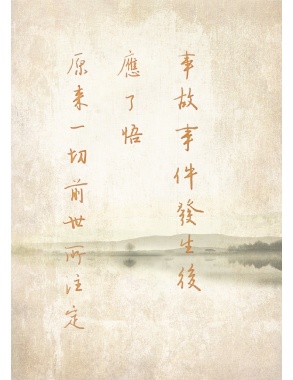 事故事件發生後
應了悟
原來一切前世所注定